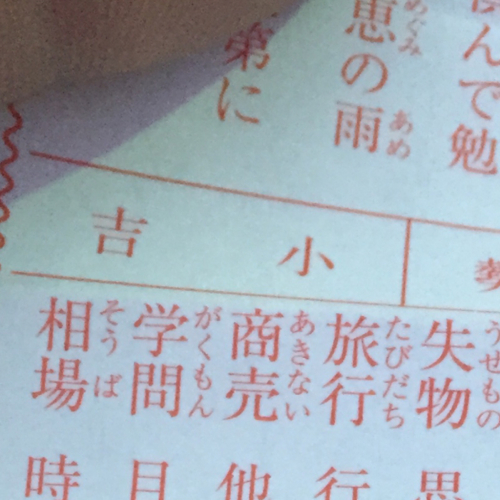 んで勉
恵の雨
めぐみ
あめ
第に
小吉
失物
うせもの
旅行
たびだち
商売
あきない
学問
がくもん
相場
そうば
思
行
他
目
時